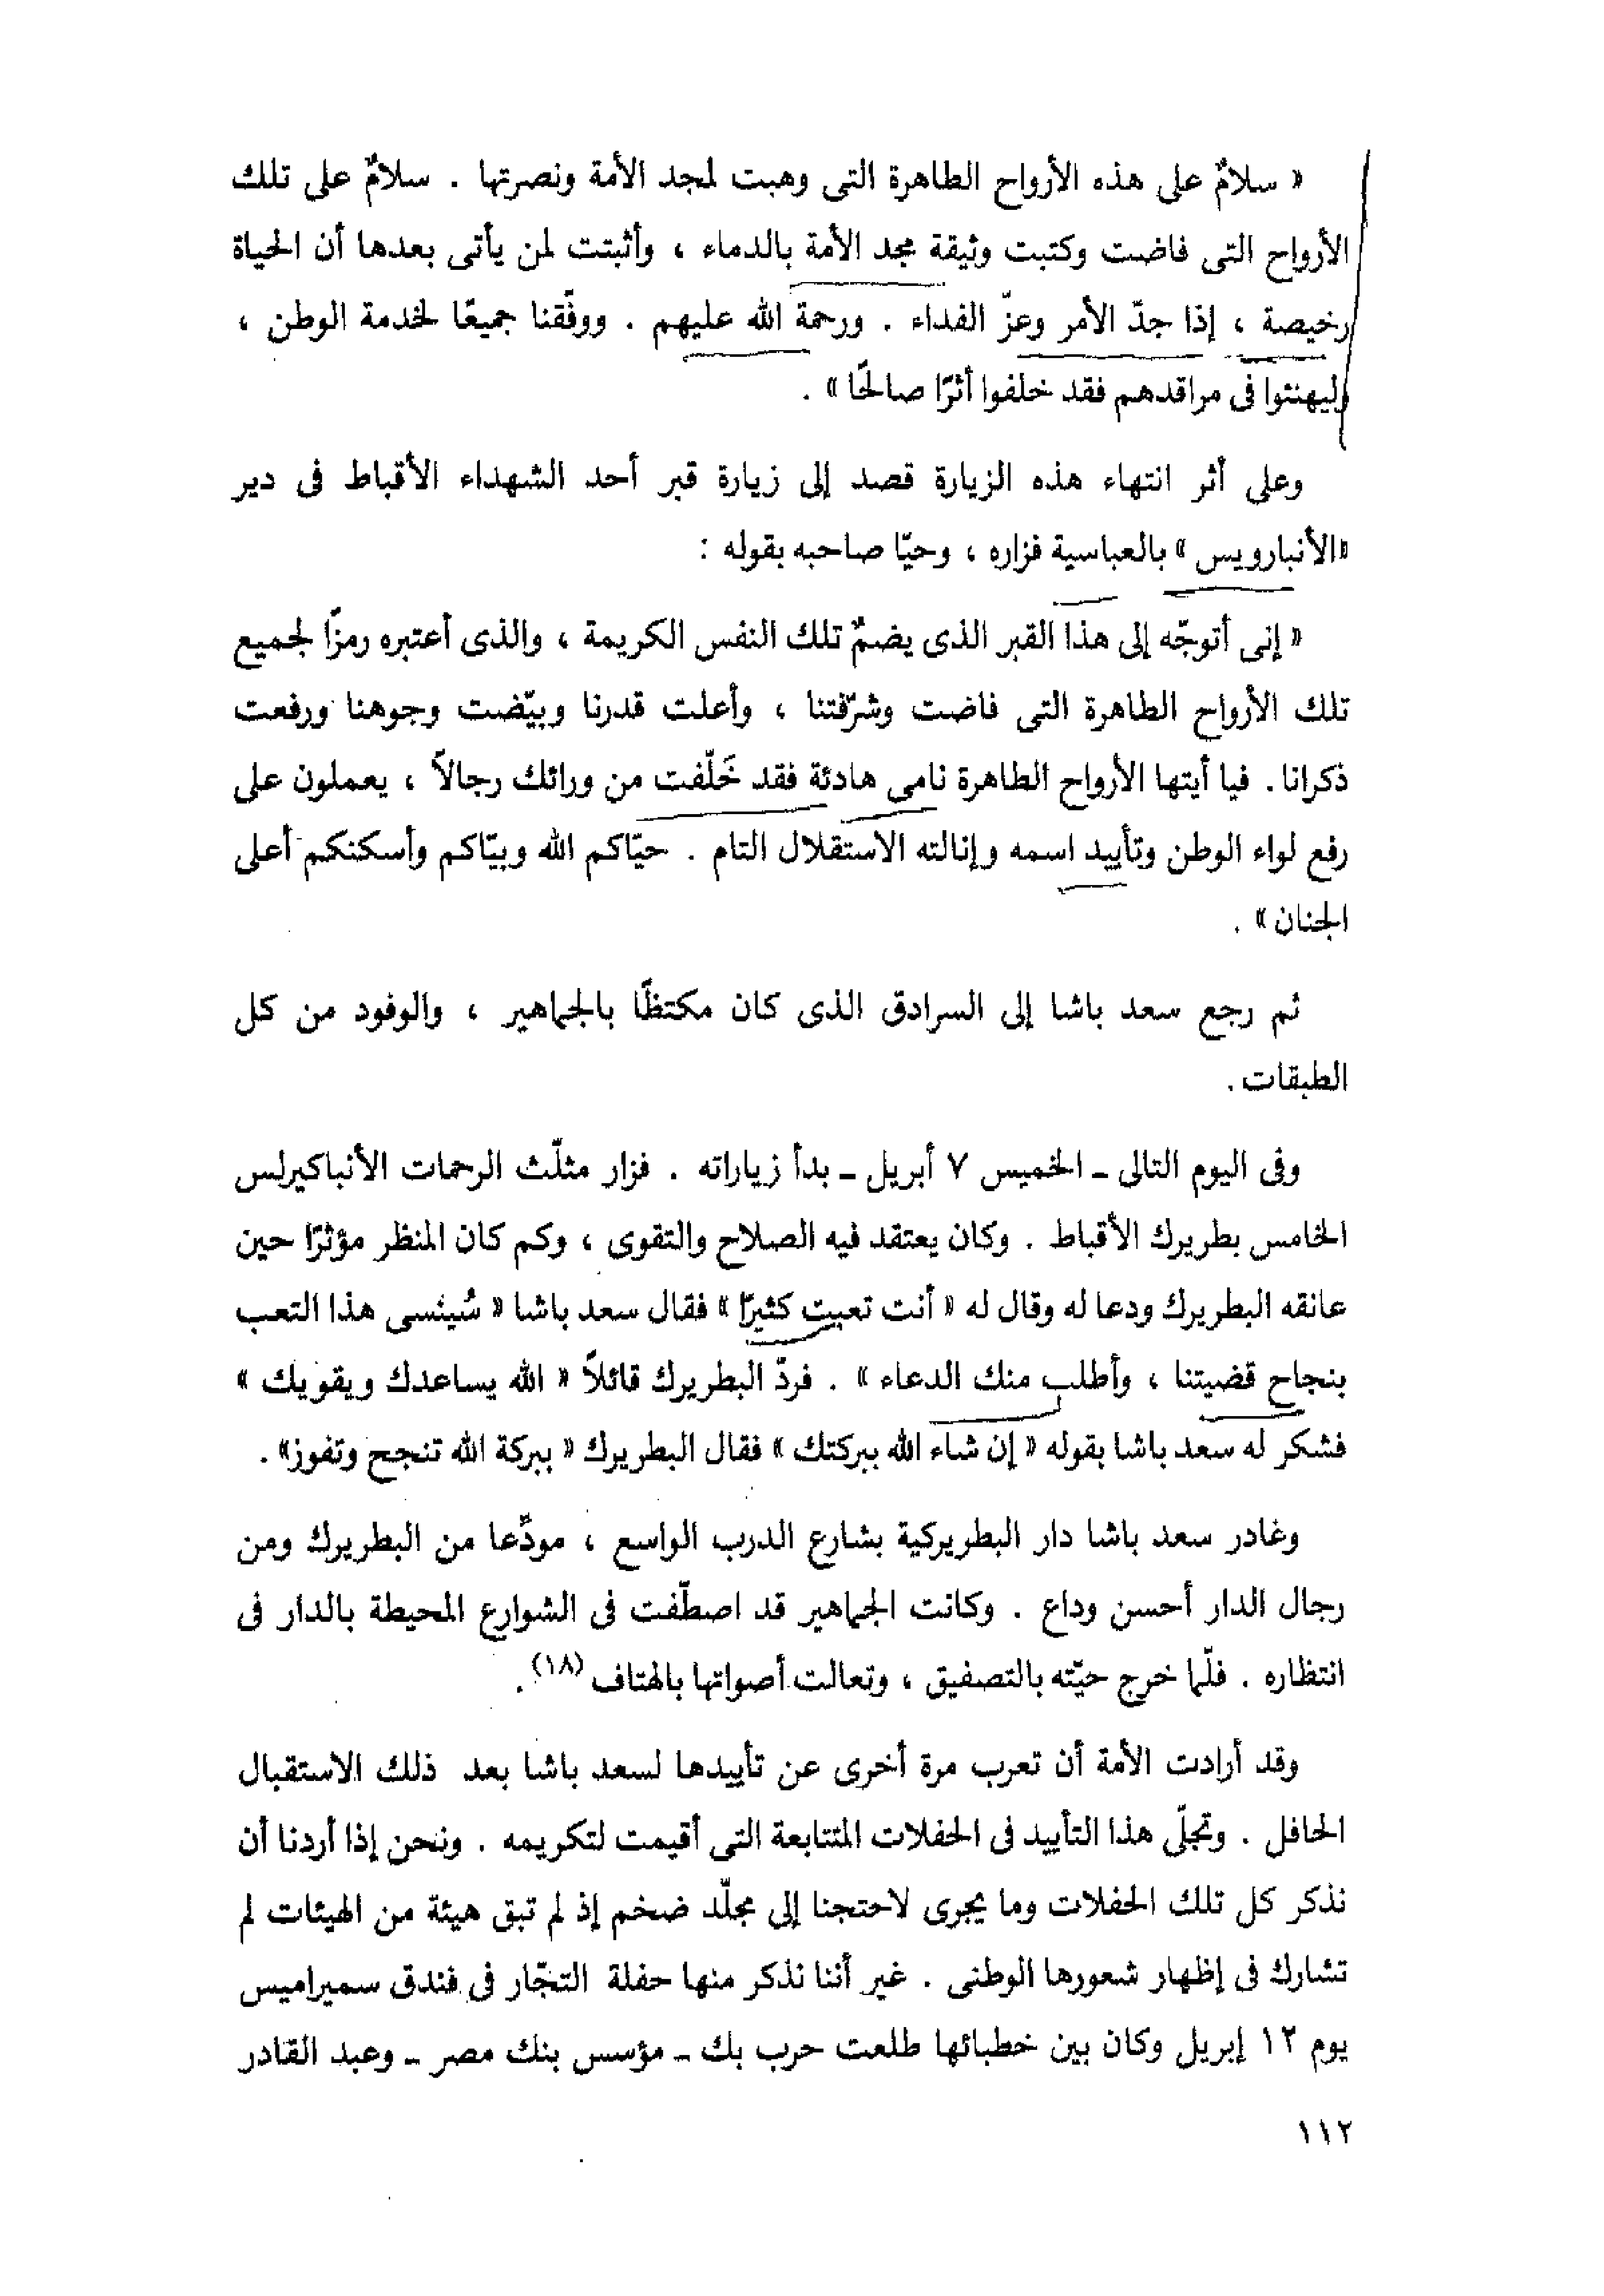 « سلامٌ على هذه الأرواح الطاهرة التى وهبت لمجد الأمة ونصرتها . سلامٌ على تلك
الأرواح التى فاضت وكتبت وثيقة مجد الأمة بالدماء ، وأثبتت لمن يأتى بعدها أن الحياة
رخيصة ، إذا جدّ الأمر وعزّ الفداء . ورحمة الله عليهم . ووفّقنا جميعًا لخدمة الوطن ،
وليهنئوا فى مراقدهم فقد خلفوا أثرًا صالحًا » .
وعلى أثر انتهاء هذه الزيارة قصد إلى زيارة قبر أحد الشهداء الأقباط فى دير
«الأنبارويس » بالعباسية فزاره ، وحيّا صاحبه بقوله :
« إنى أتوجّه إلى هذا القبر الذى يضمّ تلك النفس الكريمة ، والذى أعتبره رمزًا لجميع
تلك الأرواح الطاهرة التى فاضت وشرّفتنا ، وأعلت قدرنا وبيّضت وجوهنا ورفعت
ذكرانا . فيا أيتها الأرواح الطاهرة نامى هادئة فقد خَلّفت من ورائك رجالاً ، يعملون على
رفع لواء الوطن وتأييد اسمه وإنالته الاستقلال التام . حيّاكم الله وبيّاكم وأسكنكم أعلى
الجنان » .
ثم رجع سعد باشا إلى السرادق الذى كان مكتظًا بالجماهير ، والوفود من كل
الطبقات .
وفى اليوم التالى ـ الخميس ٧ أبريل ـ بدأ زياراته . فزار مثلّث الرحمات الأنباكيرلس
الخامس بطريرك الأقباط . وكان يعتقد فيه الصلاح والتقوى ، وكم كان المنظر مؤثرًا حين
عانقه البطريرك ودعا له وقال له « أنت تعبت كثيرًا » فقال سعد باشا « سُينسى هذا التعب
بنجاح قضيتنا ، وأطلب منك الدعاء » . فردّ البطريرك قائلاً « الله يساعدك ويقويك »
فشكر له سعد باشا بقوله « إن شاء الله ببركتك » فقال البطريرك « ببركة الله تنجح وتفوز» .
وغادر سعد باشا دار البطريركية بشارع الدرب الواسع ، مودّعا من البطريرك ومن
رجال الدار أحسن وداع . وكانت الجماهير قد اصطّفت فى الشوارع المحيطة بالدار فى
انتظاره . فلّما خرج حيّته بالتصفيق ، وتعالت أصواتها بالهتاف (١٨) .
وقد أرادت الأمة أن تعرب مرة أخرى عن تأييدها لسعد باشا بعد ذلك الاستقبال
الحافل . وتجلّى هذا التأييد فى الحفلات المتتابعة التى أقيمت لتكريمه . ونحن إذا أردنا أن
نذكر كل تلك الحفلات وما يجرى لاحتجنا إلى مجلّد ضخم إذ لم تبق هيئة من الهيئات لم
تشارك فى إظهار شعورها الوطنى . غير أننا نذكر منها حفلة التجّار فى فندق سميراميس
يوم ١٢ إبريل وكان بين خطبائها طلعت حرب بك ـ مؤسس بنك مصر ـ وعبد القادر
١١٢